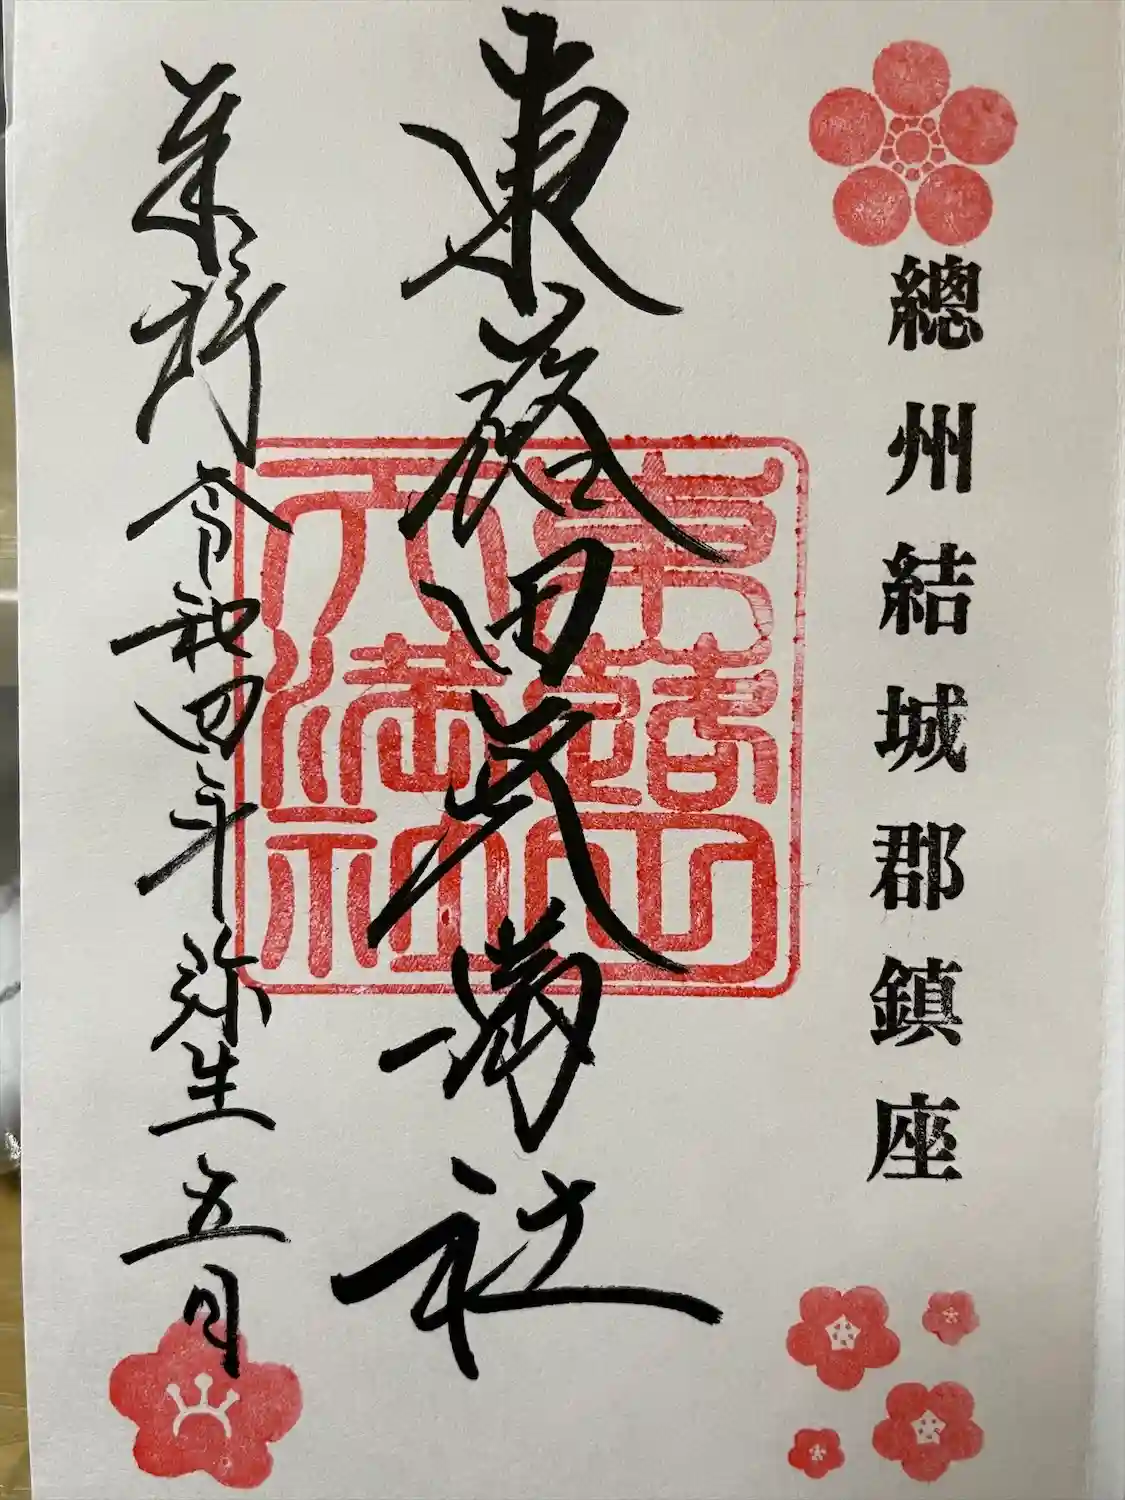 總州結城郡鎮座
東蕗田天満社
奉拝 令和四年弥生五日
東蕗田
天満社